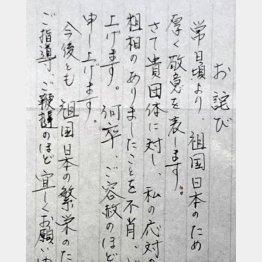 お詫び
常日頃より、祖国日本のため
厚く敬意を表します。
さて貴団体に対し、私の応対の
粗相のありましたことを不肖、
上げます。何卒、ご容赦のほど
申し上げます。
今後とも祖国日本の繁栄のた
ご指導、ご鞭撻のほど宜しくお願い